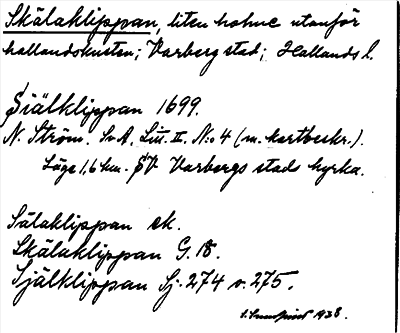 Skälaklippan, liten holme utanför
hallandskusten; Varberg stad; Hallands l.
Siälklippan 1699.
N. Ström. Sv. A. Litt. II. N:o 4 (m. kartbeskr.).
Läge 1,6 km. SV Varbergs stads kyrka.
Sälaklippan ek.
Skälaklippan G. 18.
Själklippan Sj. 274 o. 275.
1938.